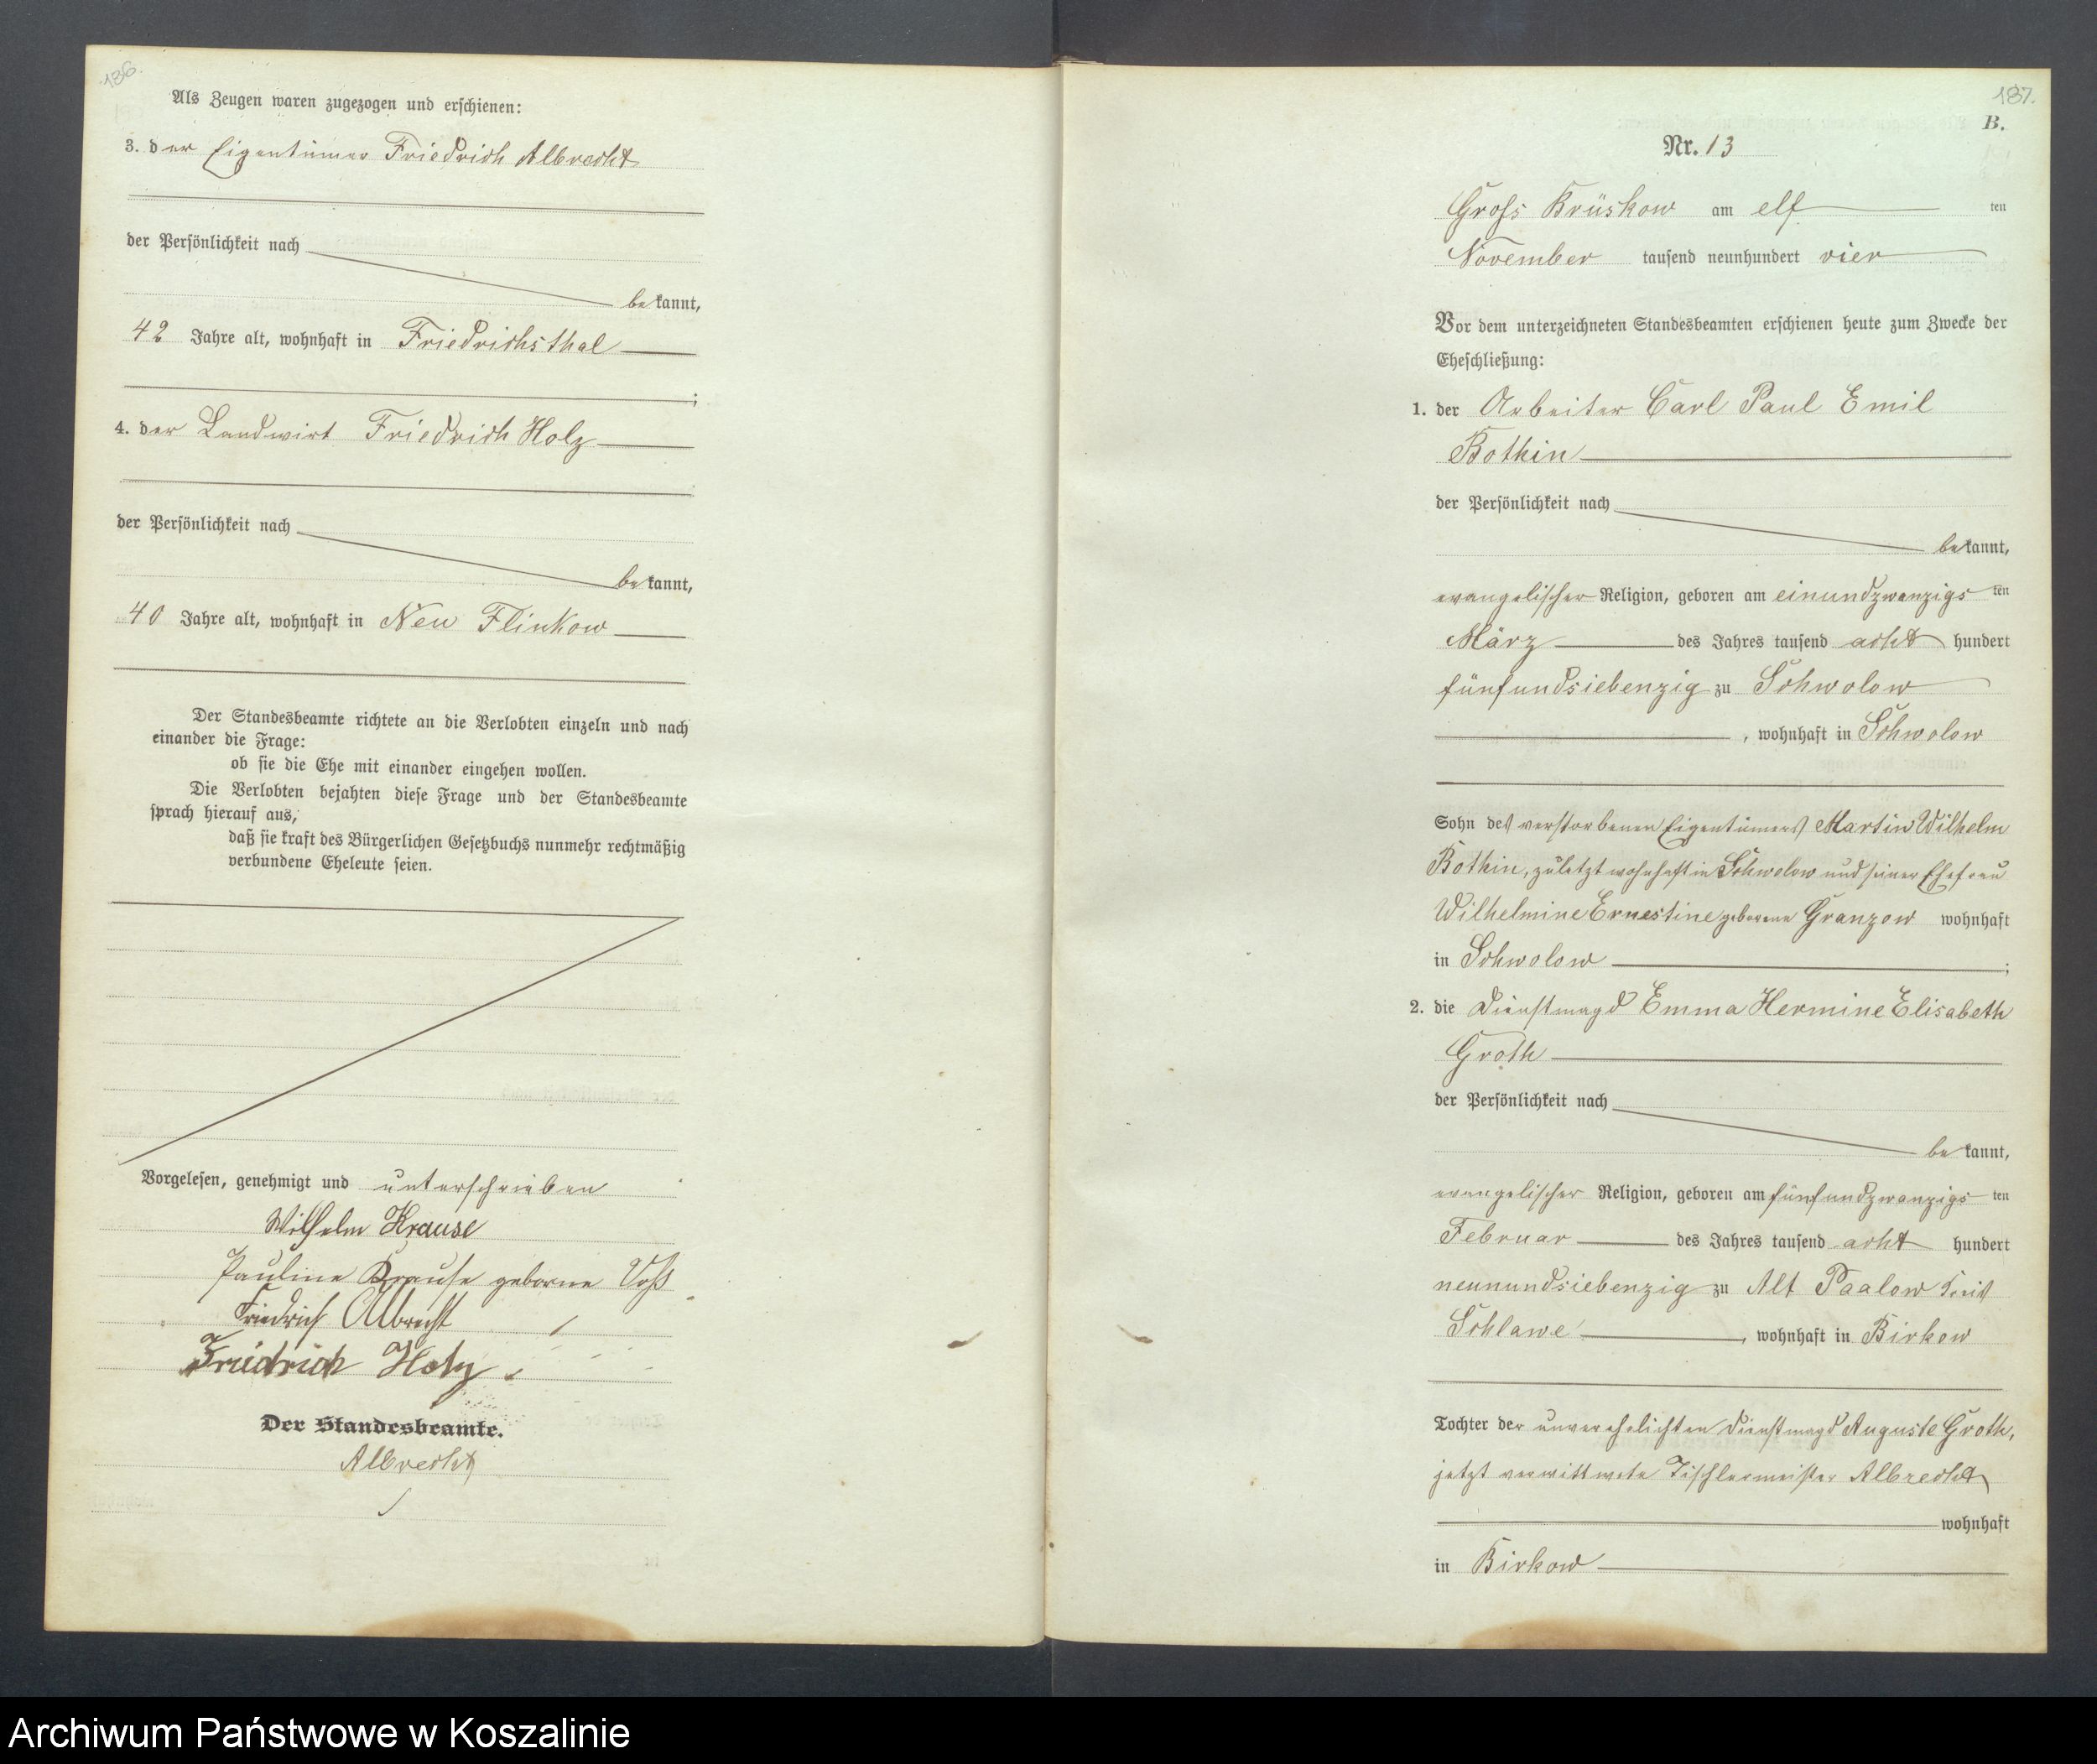 186.
Als Zeugen waren zugezogen und erschienen:
3. der Eigentümer Friedrich Albrecht
der Persönlichkeit nach
bekannt,
42 Jahre alt, wohnhaft in Friedrichsthal
;
4. der Landwirt Friedrich Holz
der Persönlichkeit nach
bekannt,
40 Jahre alt, wohnhaft in Neu Flinkow
Der Standesbeamte richtete an die Verlobten einzeln und nach
einander die Frage:
ob sie die Ehe mit einander eingehen wollen.
Die Verlobten bejahten diese Frage und der Standesbeamte
sprach hierauf aus,
daß sie kraft des Bürgerlichen Gesetzbuchs nunmehr rechtmäßig
verbundene Eheleute seien.
Vorgelesen, genehmigt und unterschrieben
Wilhelm Krause
Pauline Krause geborne Voß
Friedrich Albrecht
Friedrich Holz
Der Standesbeamte.
Albrecht
187.
B.
Nr. 13
Gross Brüskow am elf ten
November tausend neunhundert vier
Vor dem unterzeichneten Standesbeamten erschienen heute zum Zwecke der
Eheschließung:
1. der Arbeiter Carl Paul Emil
Bothin
der Persönlichkeit nach
bekannt,
evangelischer Religion, geboren am einundzwanzigs ten
März des Jahres tausend acht hundert
fünfundsiebenzig zu Schwolow
, wohnhaft in Schwolow
Sohn des verstorbenen Eigentümers Martin Wilhelm
Bothin, zuletzt wohnhaft in Schwolow und seiner Ehefrau
Wilhelmine Ernestine geborene Granzow wohnhaft
in Schwolow ;
2. die Dienstmagd Emma Hermine Elisabeth
Groth
der Persönlichkeit nach
bekannt,
evangelischer Religion, geboren am fünfundzwanzigs ten
Februar des Jahres tausend acht hundert
neunundsiebenzig zu Alt Paalow Kreis
Schlawe, wohnhaft in Birkow
Tochter der unverehelichten Dienstmagd Auguste Groth,
jetzt verwittwete Tischlermeister Albrecht
wohnhaft
in Birkow
Archiwum Państwowe w Koszalinie